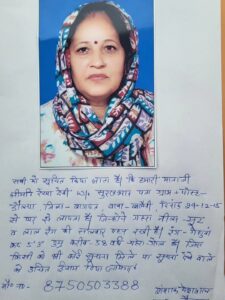 सभी को सूचित किया जाता है कि हमारी माताजी
श्रीमती रेखा देवी w/o सूरजभान ग्राम + पोस्ट-
जिला - बागपत, थाना - दिनांक 29-12-15
से घर से लापता है जिन्होंने गहरा नीला सूट
व लाल रंग की सलवार पहन रखी है। रंग - गेहुआ
कद 5'3" उम्र करीब 58 वर्ष है। जिस
किसी को भी कोई सूचना मिले या सूचना देने वाले
को उचित इनाम दिया जायेगा।
मो० नं०- 8750503388